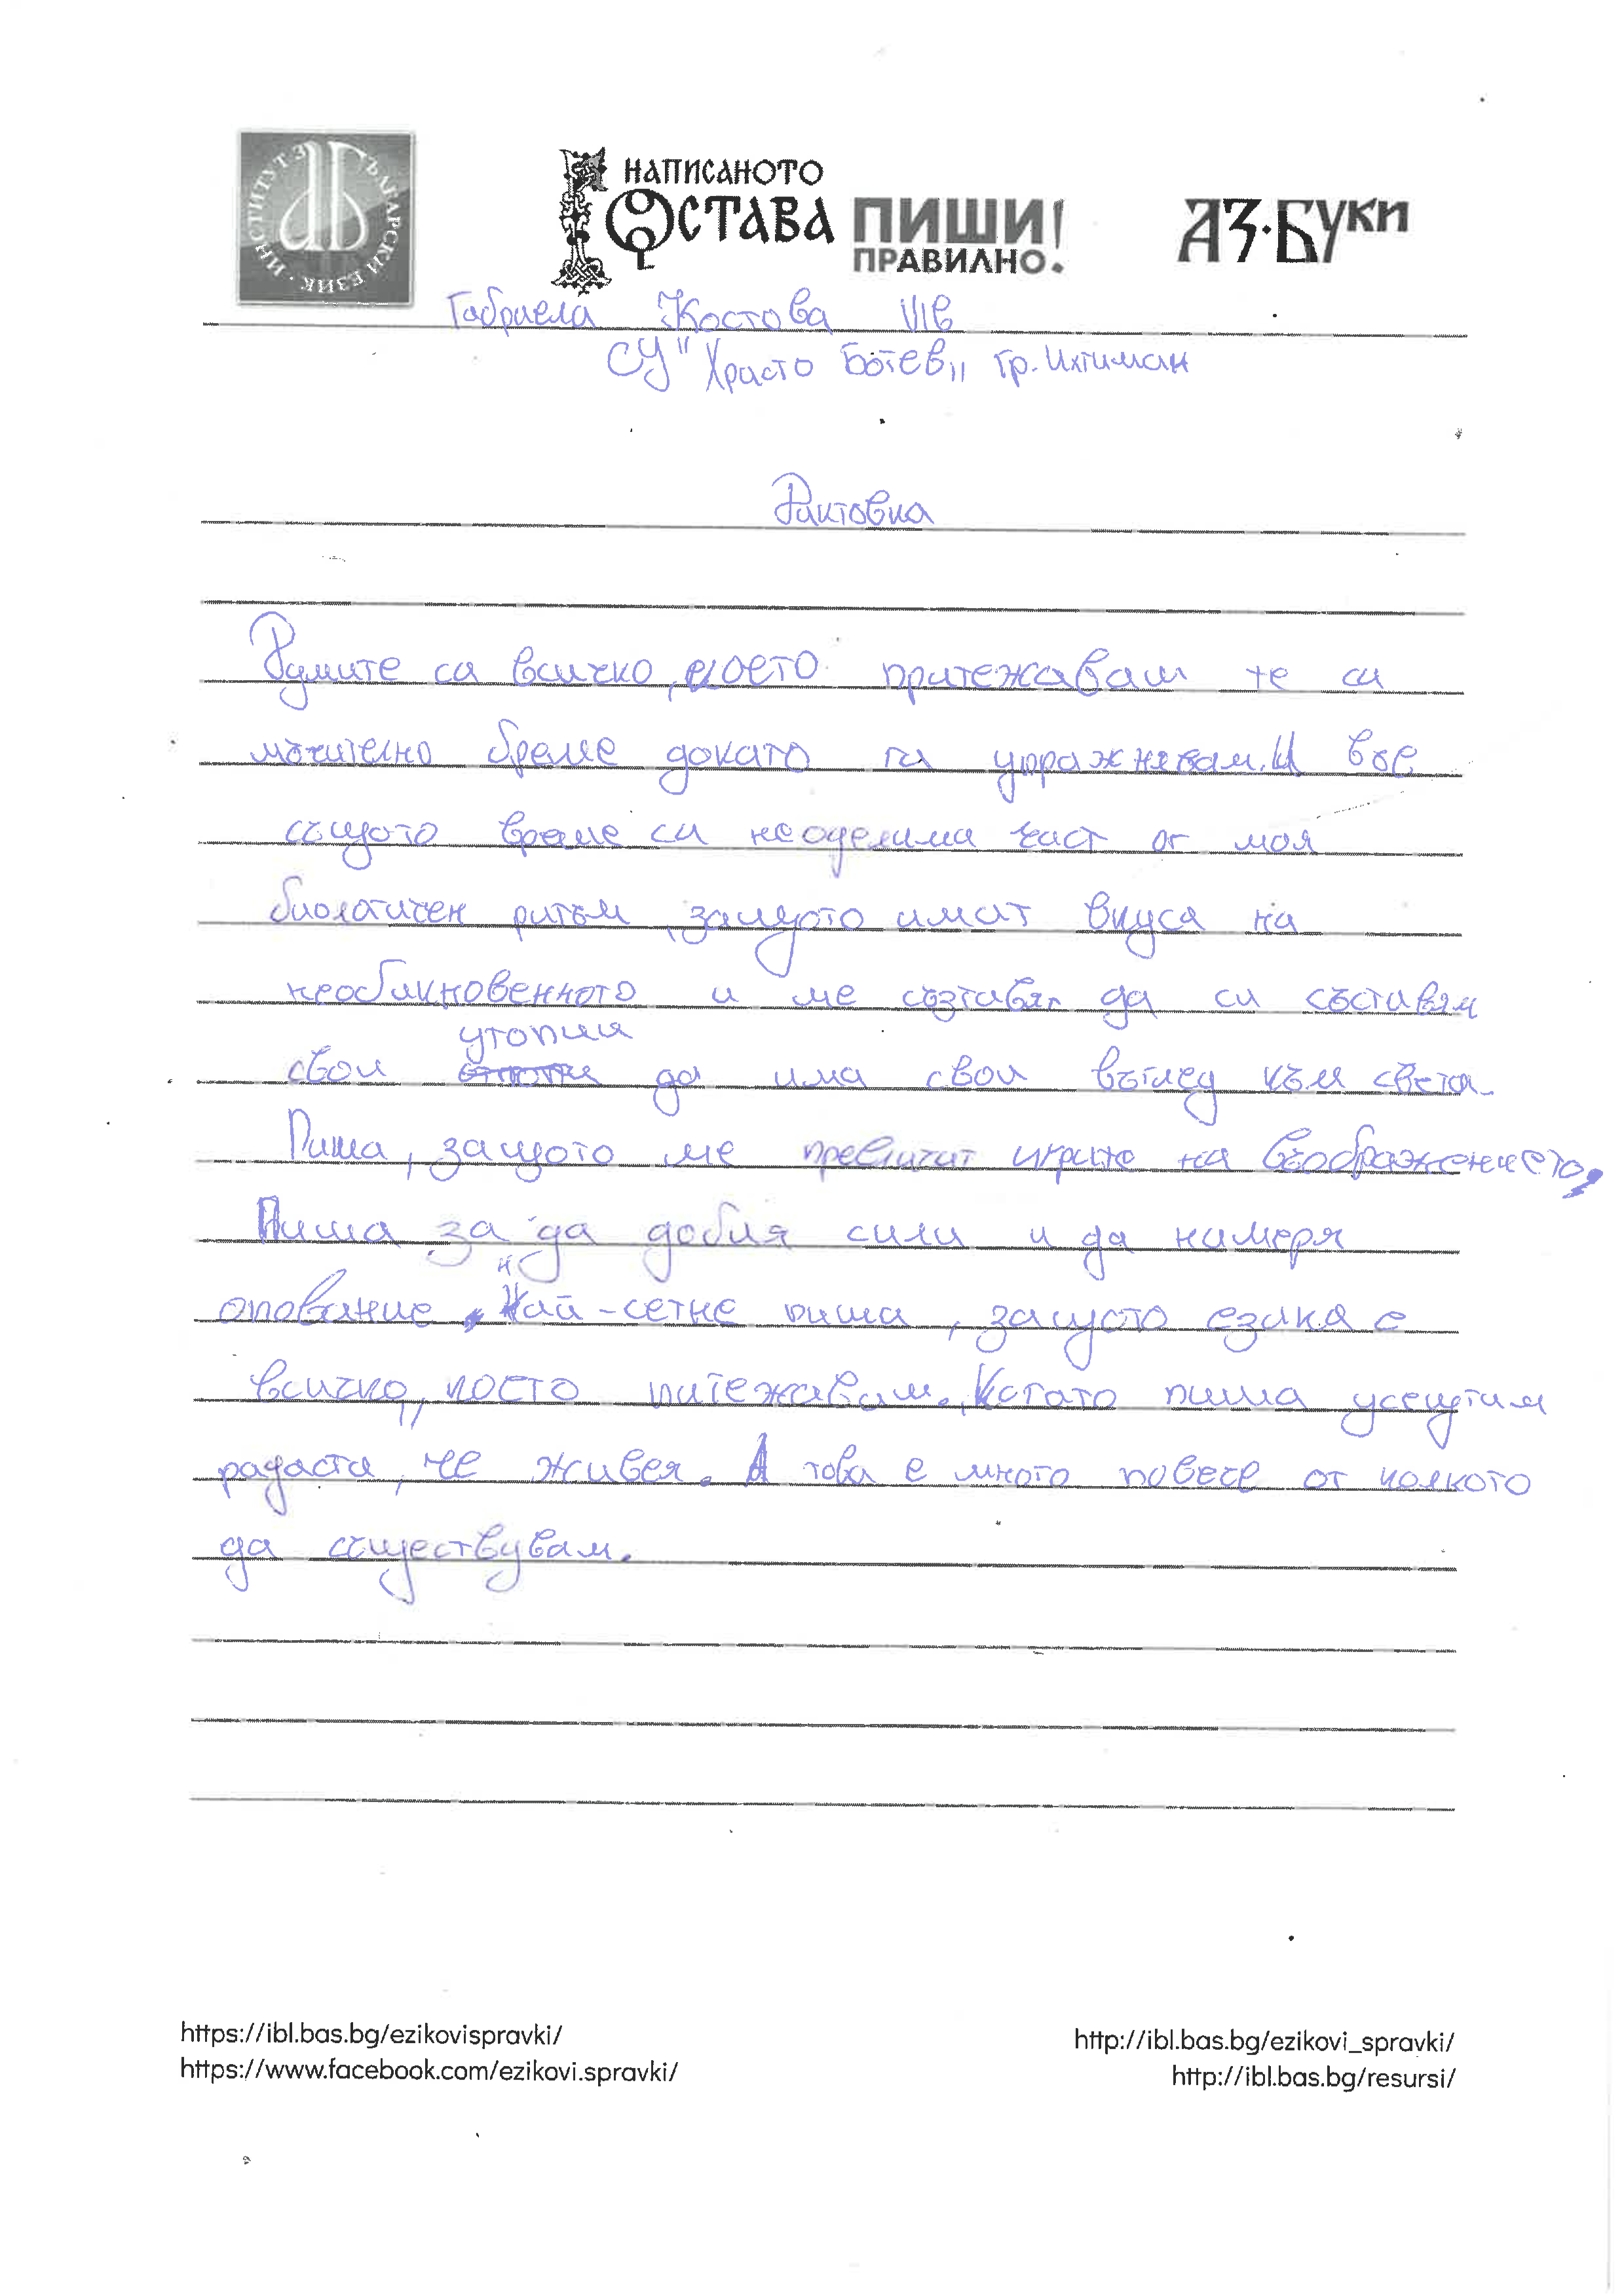 ИНСТИТУТ ЗА БЪЛГАРСКИ ЕЗИК
НАПИСАНОТО
ОСТАВА ПИШИ!
ПРАВИЛНО.
АЗ·БУКИ
Габриела Костова VIIв
СУ "Христо Ботев„ гр. Ихтиман
Диктовка
Думите са всичко, което притежавам те са
мъчително бреме докато ги упражнявам. И във
същото време са неоделима част от моя
биологичен ритъм, защото имат вкуса на
необикновенното и ме създават да си съставям
утопии
свои да има свои възглед към света.
Пиша, защото ме превличат играте на въображението,
Пиша за да добия сили и да намеря
опование, най-сетне пиша, защото езика е
всичко, което питежавам. Когато пиша усещтам
радоста, че живея. А това е много повече от колкото
да съществувам.
https://ibl.bas.bg/ezikovispravki/
https://www.facebook.com/ezikovi.spravki/
http://ibl.bas.bg/ezikovi_spravki/
http://ibl.bas.bg/resursi/